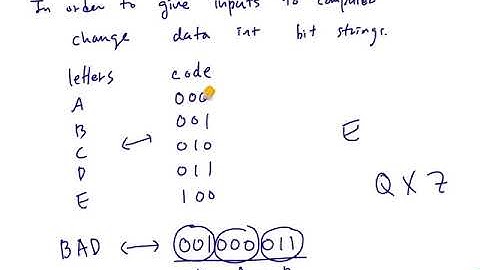 In order to give inputs to computer
change data int bit strings.
letters code
A 000
B 001
C ↔ 010
D 011
E 100
E
Q X Z
BAD ↔ 001 000 011